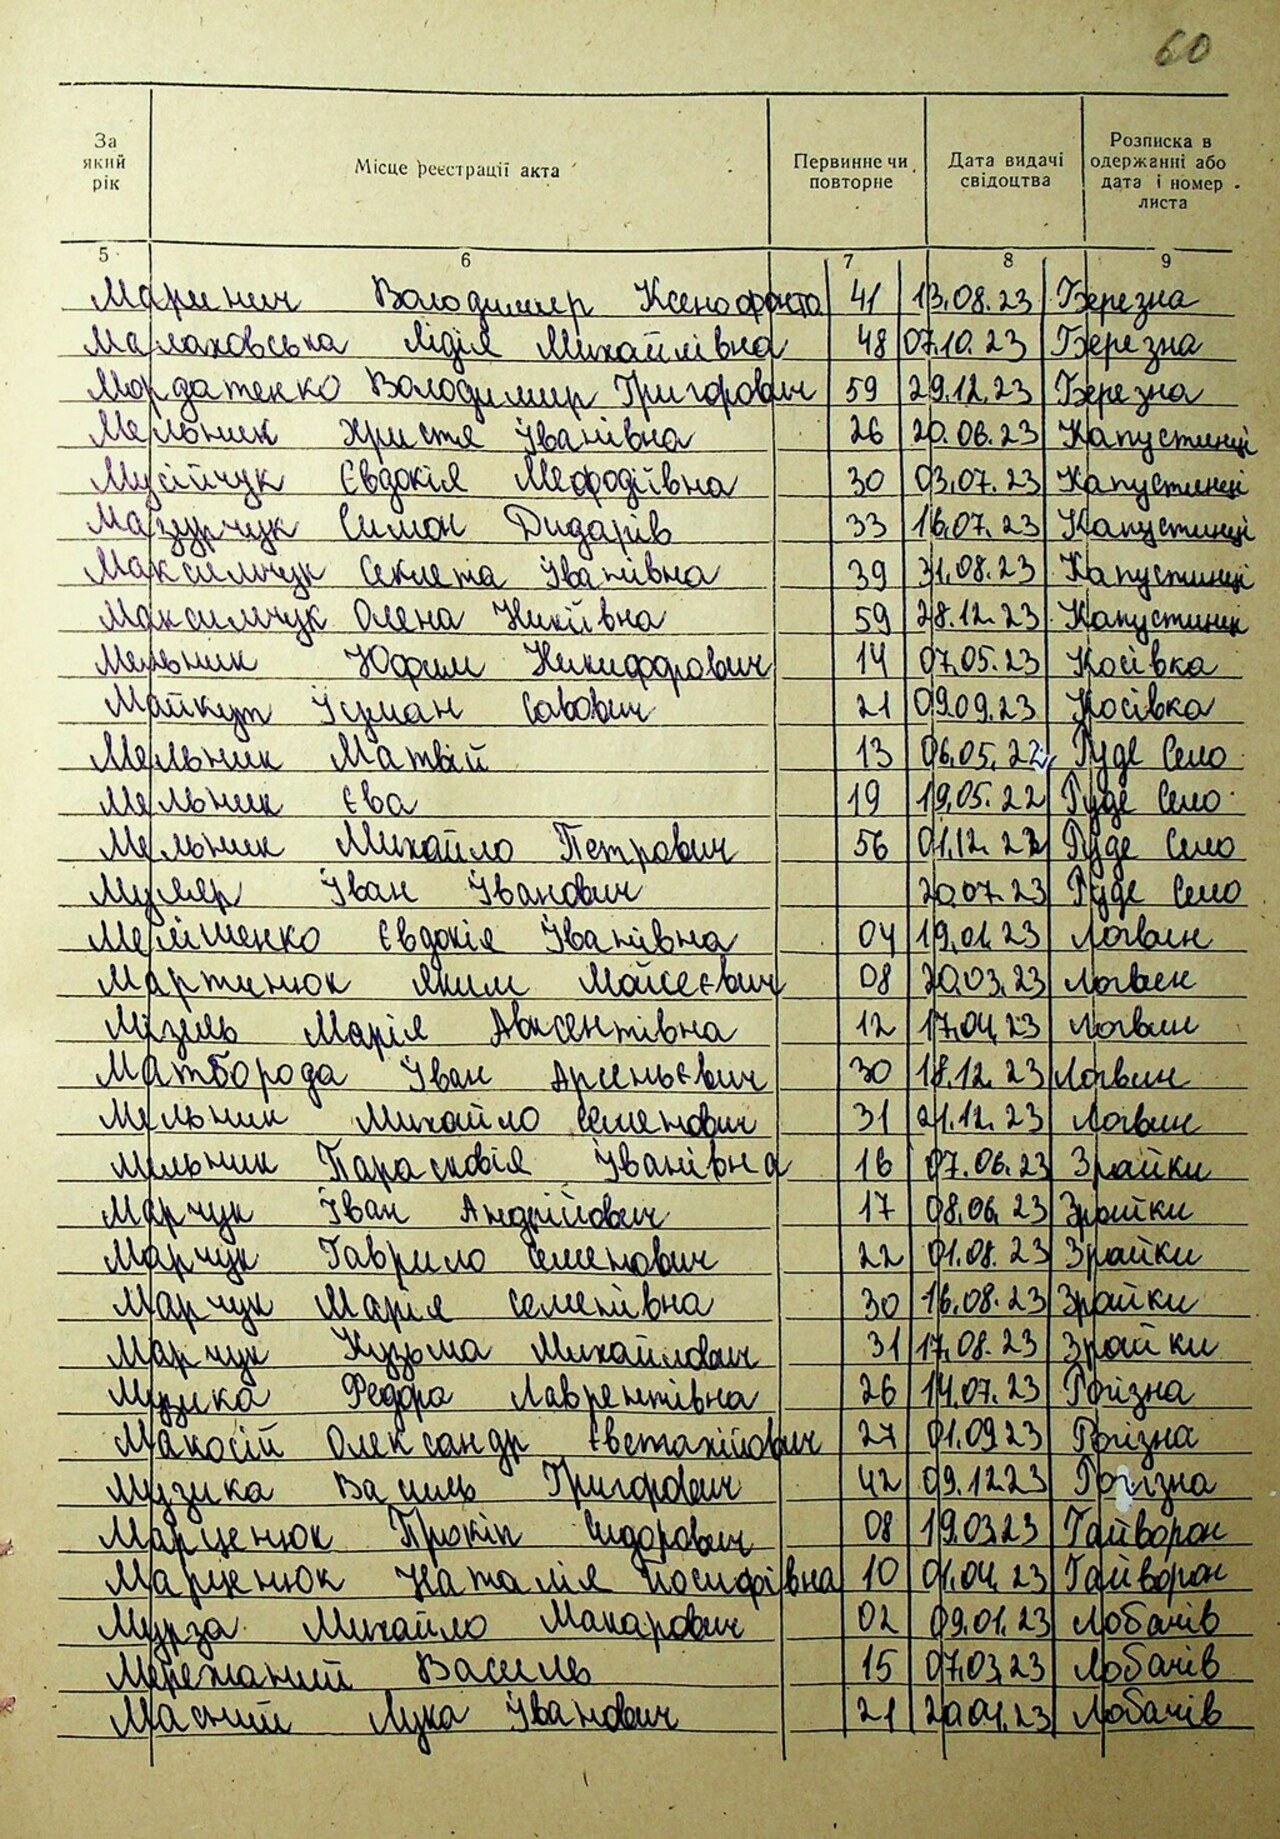 60
За який рік
Місце реєстрації акта
Первинне чи повторне
Дата видачі свідоцтва
Розписка в одержанні або дата і номер листа
5 6 7 8 9
Маринич Володимир Ксенофонта 41 13.08.23 Березна
Малаховська Лідія Михайлівна 48 07.10.23 Березна
Мордатенко Володимир Григорович 59 29.12.23 Березна
Мельник Христя Іванівна 26 20.06.23 Капустинці
Мусійчук Євдокія Мефодіївна 30 03.07.23 Капустинці
Мазурчук Симон 33 16.07.23 Капустинці
Максимчук Секлета Іванівна 39 31.08.23 Капустинці
Максимчук Олена Никіївна 59 28.12.23 Капустинці
Мельник Юфим Никифорович 14 07.05.23 Косівка
Майкут Савович 21 09.09.23 Косівка
Мельник Матвій 13 06.05.22 Руде Село
Мельник Єва 19 19.05.22 Руде Село
Мельник Михайло Петрович 56 01.12.22 Руде Село
Муляр Іван Іванович 20.07.23 Руде Село
Мелішенко Євдокія Іванівна 04 19.01.23 Логвин
Мартинюк Яким Мойсеєвич 08 20.03.23 Логвин
Мізель Марія Авксентівна 12 17.04.23 Логвин
Матборода Іван Арсеньєвич 30 18.12.23 Логвин
Мельник Михайло Семенович 31 21.12.23 Логвин
Мельник Парасковія Іванівна 16 07.06.23 Зрайки
Марчук Іван Андрійович 17 08.06.23 Зрайки
Марчук Гаврило Семенович 22 01.08.23 Зрайки
Марчук Марія Семенівна 30 16.08.23 Зрайки
Марчук Кузьма Михайлович 31 17.08.23 Зрайки
Музика Федора Лаврентівна 26 14.07.23 Рогізна
Макосій Олександр Євстахійович 27 01.09.23 Рогізна
Музика Василь Григорович 42 09.12.23 Рогізна
Марценюк Прокіп Сидорович 08 19.03.23 Гайворон
Марценюк Наталія Йосифівна 10 01.04.23 Гайворон
Мурза Михайло Макарович 02 09.01.23 Лобачів
Мережаний Василь 15 07.03.23 Лобачів
Масний Лука Іванович 21 20.04.23 Лобачів